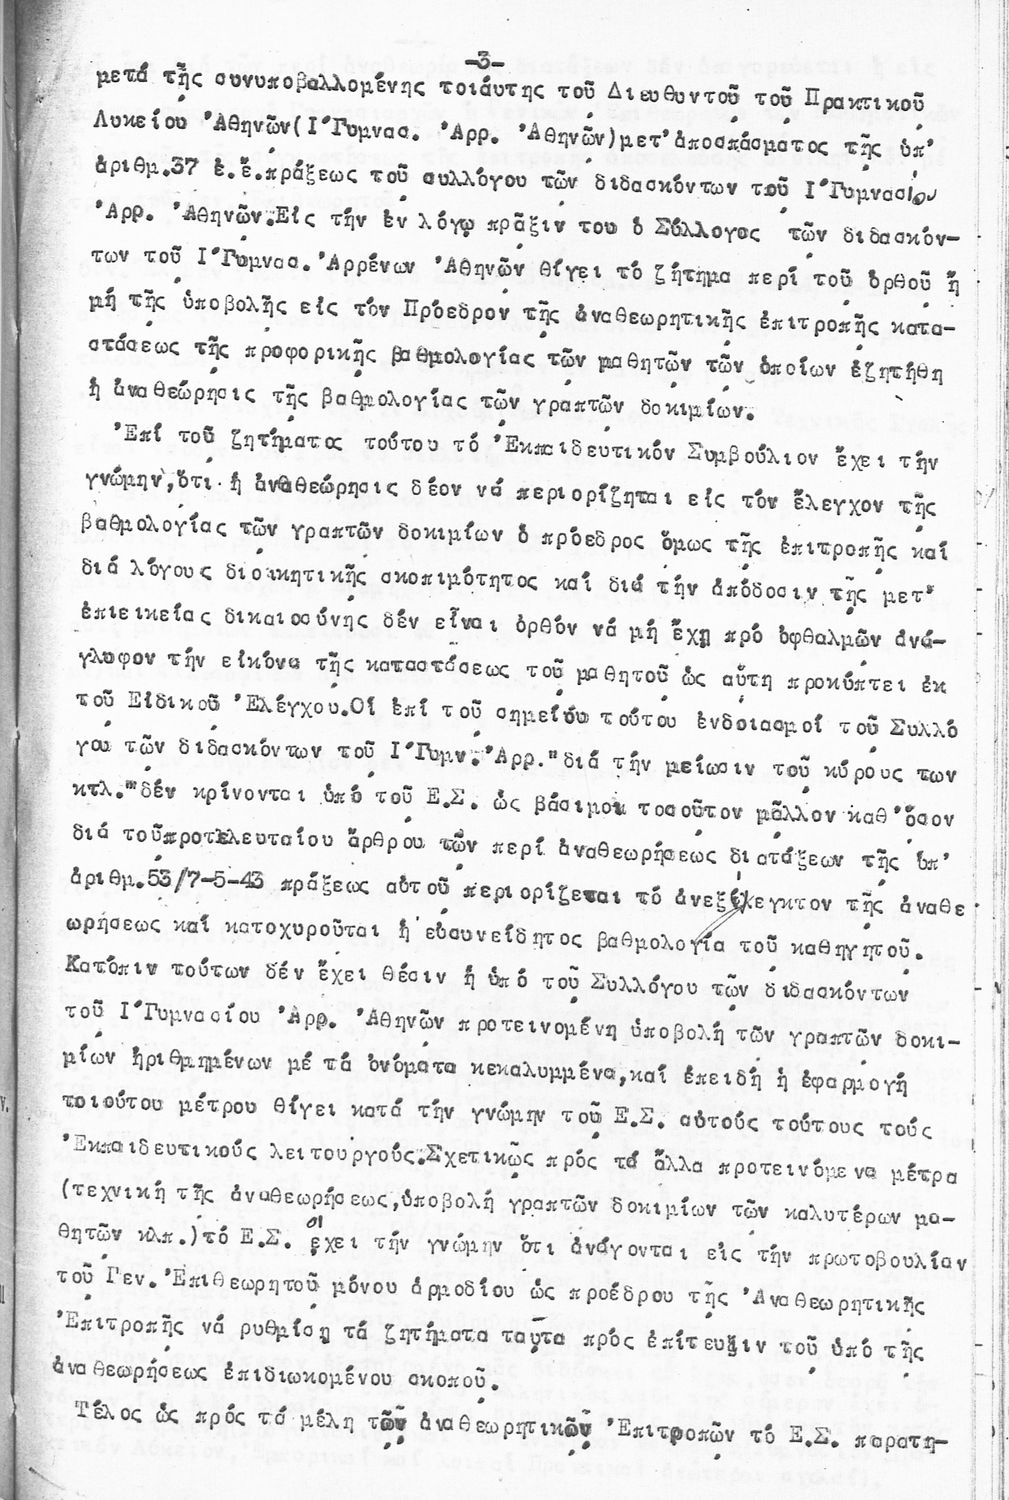 -3-
μετά τῆς συνυποβαλλομένης τοιάυτης τοῦ Διευθυντοῦ τοῦ Πρακτικοῦ
Λυκείου Ἀθηνῶν(Ι΄Γυμνασ. Ἀρρ. Ἀθηνῶν)μετ' ἀποσπάσματος τῆς ὑπ'
ἀριθμ.37 ἐ.ἔ.πράξεως τοῦ συλλόγου τῶν διδασκόντων τοῦ Ι΄Γυμνασίου
Ἀρρ. Ἀθηνῶν.Εἰς τήν ἐν λόγῳ πρᾶξιν του ὁ Σύλλογος τῶν διδασκόν-
των τοῦ Ι΄Γυμνασ.Ἀρρένων Ἀθηνῶν θίγει τό ζήτημα περί τοῦ ὀρθοῦ ἤ
μή τῆς ὑποβολῆς εἰς τόν Πρόεδρον τῆς ἀναθεωρητικῆς ἐπιτροπῆς κατα-
στάσεως τῆς προφορικῆς βαθμολογίας τῶν μαθητῶν τῶν ὁποίων ἐζητήθη
ἡ ἀναθεώρησις τῆς βαθμολογίας τῶν γραπτῶν δοκιμίων.
Ἐπί τοῦ ζητήματος τούτου τό Ἐκπαιδευτικόν Συμβούλιον ἔχει τήν
γνώμην,ὅτι ἡ ἀναθεώρησις δέον νά περιορίζηται εἰς τόν ἔλεγχον τῆς
βαθμολογίας τῶν γραπτῶν δοκιμίων ὁ πρόεδρος ὅμως τῆς ἐπιτροπῆς καί
διά λόγους διοικητικῆς σκοπιμότητος καί διά τήν ἀπόδοσιν τῆς μετ'
ἐπιεικείας δικαιοσύνης δέν εἶναι ὀρθόν νά μή ἔχῃ πρό ὀφθαλμῶν ἀνά-
γλυφον τήν εἰκόνα τῆς καταστάσεως τοῦ μαθητοῦ ὡς αὕτη προκύπτει ἐκ
τοῦ Εἰδικοῦ Ἐλέγχου.Οἱ ἐπί τοῦ σημείου τούτου ἐνδοιασμοί τοῦ Συλλό
γου τῶν διδασκόντων τοῦ Ι΄Γυμν.Ἀρρ."διά τήν μείωσιν τοῦ κύρους των
κτλ."δέν κρίνονται ὑπό τοῦ Ε.Σ. ὡς βάσιμοι τοσοῦτον μᾶλλον καθ'ὅσον
διά τοῦπροτελευταίου ἄρθρου τῶν περί ἀναθεωρήσεως διατάξεων τῆς ὑπ'
ἀριθμ.53/7-5-43 πράξεως αὐτοῦ περιορίζεται τό ἀνεξέλεγκτον τῆς ἀναθε
ωρήσεως καί κατοχυροῦται ἡ εὐσυνείδητος βαθμολογία τοῦ καθηγητοῦ.
Κατόπιν τούτων δέν ἔχει θέσιν ἡ ὑπό τοῦ Συλλόγου τῶν διδασκόντων
τοῦ Ι΄Γυμνασίου Ἀρρ. Ἀθηνῶν προτεινομένη ὑποβολή τῶν γραπτῶν δοκι-
μίων ἠριθμημένων μέ τά ὀνόματα κεκαλυμμένα,καί ἐπειδή ἡ ἐφαρμογή
τοιούτου μέτρου θίγει κατά τήν γνώμην τοῦ Ε.Σ. αὐτούς τούτους τούς
Ἐκπαιδευτικούς λειτουργούς.Σχετικῶς πρός τά ἄλλα προτεινόμενα μέτρα
(τεχνική τῆς ἀναθεωρήσεως,ὑποβολή γραπτῶν δοκιμίων τῶν καλυτέρων μα-
θητῶν κλπ.)τό Ε.Σ. ἔχει τήν γνώμην ὅτι ἀνάγονται εἰς τήν πρωτοβουλίαν
τοῦ Γεν.Ἐπιθεωρητοῦ μόνου ἁρμοδίου ὡς προέδρου τῆς Ἀναθεωρητικῆς
Ἐπιτροπῆς νά ρυθμίσῃ τά ζητήματα ταῦτα πρός ἐπίτευξιν τοῦ ὑπό τῆς
ἀναθεωρήσεως ἐπιδιωκομένου σκοποῦ.
Τέλος ὡς πρός τά μέλη τῶν ἀναθεωρητικῶν Ἐπιτροπῶν τό Ε.Σ. παρατη-